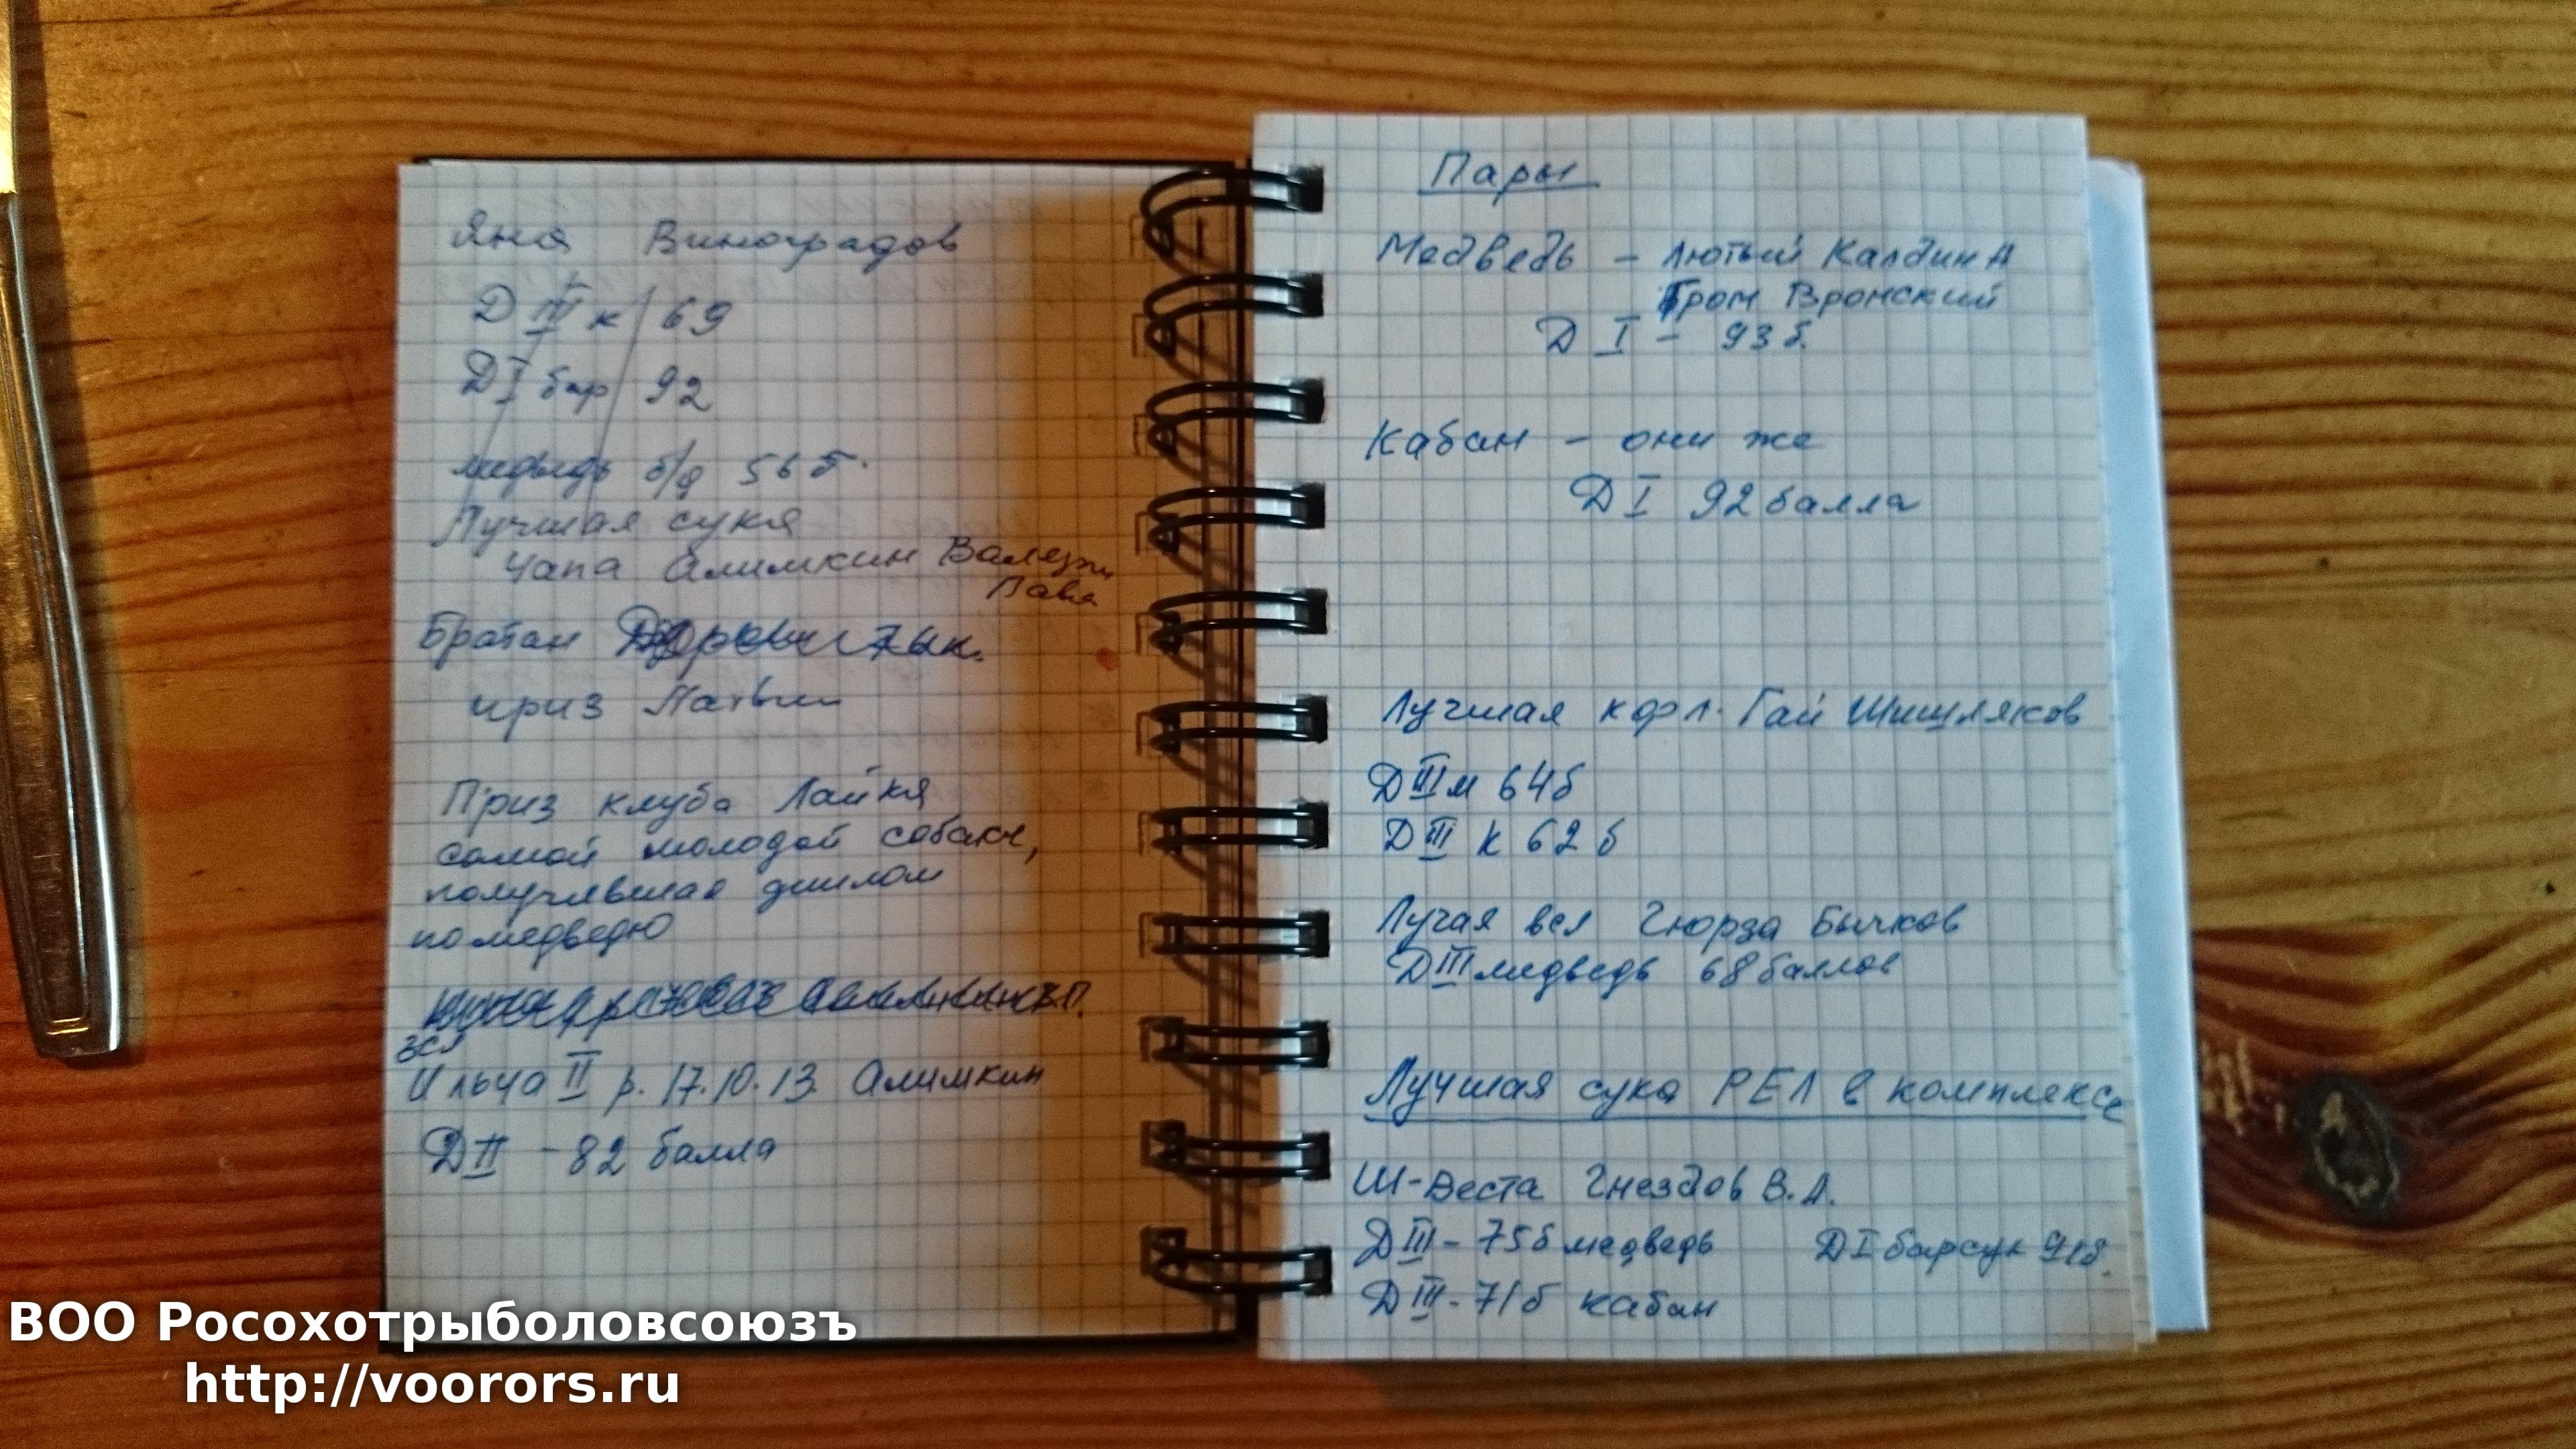 Яна Виноградов
Д III к 69
Д I бар 92
медведь б/д 56 б.
Лучшая сука
Чапа Алимкин Валерий
Павл
Братан
приз Латвии
Приз клуба Лайка
самой молодой собаке,
получявшая диплом
по медведю
ЗСЛ
Ильча II р. 17.10.13. Алимкин
Д II - 82 балла
Пары
Медведь - Лютый Калдин А
Гром Вронский
Д I - 93 б.
Кабан - они же
Д I 92 балла
Лучшая кфл. Гай Шишляков
Д III м 64 б
Д III к 62 б
Лучая всл Гюрза Бычков
Д III медведь 68 баллов
Лучшая сука РЕЛ в комплексе
Ш-Веста Гнездов В.А.
Д III - 75 б медведь Д I барсук 91 б.
Д III - 71 б кабан
ВОО Росохотрыболовсоюзъ
http://voorors.ru